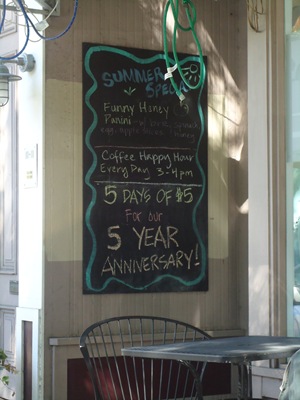 SUMMER
SPECIAL
Funny Honey $9
Panini
egg, apple
honey
Coffee Happy Hour
Every Day 3-4pm
5 DAYS OF $5
For our
5 YEAR
ANNIVERSARY!